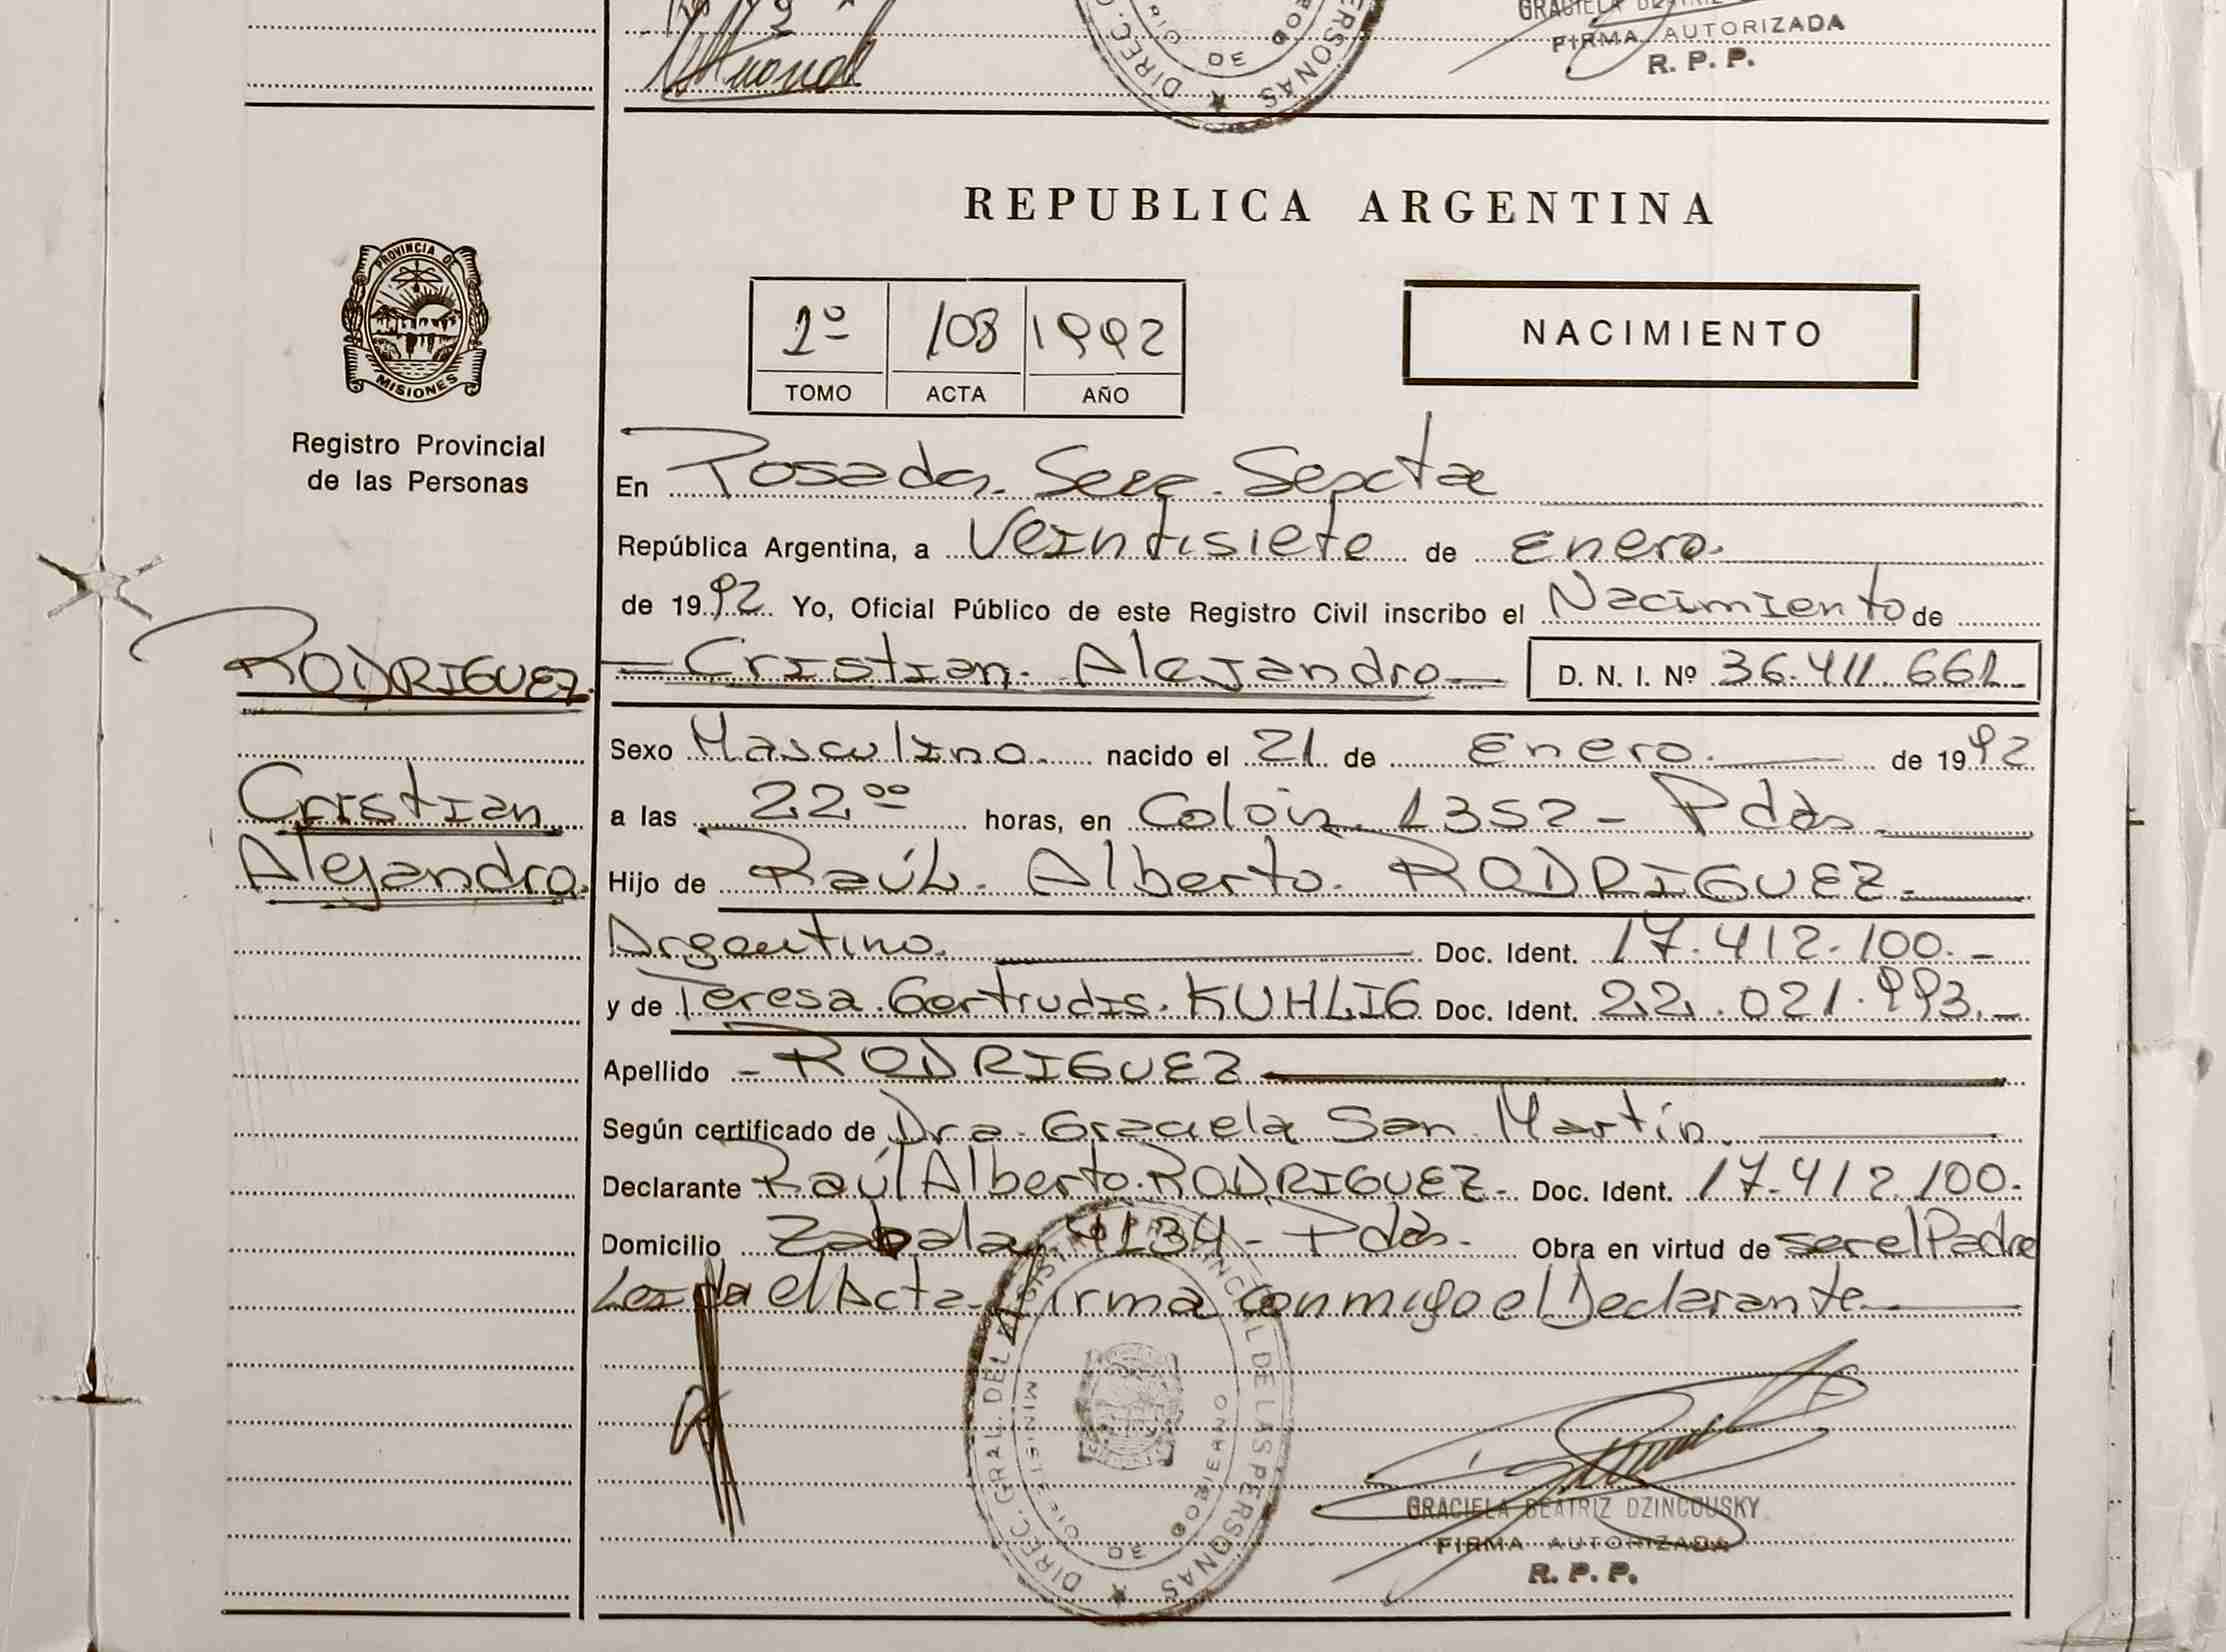 GRACIELA BEATRIZ
FIRMA AUTORIZADA
R. P. P.
DIREC. PERSONAS
DE
REPUBLICA ARGENTINA
PROVINCIA DE
MISIONES
Registro Provincial
de las Personas
1º 108 1992
TOMO ACTA AÑO
NACIMIENTO
En Posadas Secc. Sexta
República Argentina, a Veintisiete de Enero.
de 1992 Yo, Oficial Público de este Registro Civil inscribo el Nacimiento de
RODRIGUEZ.
Cristian Alejandro
— Cristian. Alejandro — D. N. I. Nº 36.411.661
Sexo Masculino. nacido el 21 de Enero. de 1992
a las 22 ºº horas, en Colón 1352 - Pdas
Hijo de Raúl. Alberto. RODRIGUEZ.
Argentino. Doc. Ident. 17.412.100.-
y de Teresa. Gertrudis. KUHLIG Doc. Ident. 22.021.993.-
Apellido - RODRIGUEZ
Según certificado de Dra. Graciela San Martín.
Declarante Raúl Alberto. RODRIGUEZ- Doc. Ident. 17.412.100.
Domicilio Zabala 4134 - Pdas. Obra en virtud de ser el Padre
Leida el Acta firma conmigo el Declarante
DIREC. GRAL. DEL REGISTRO PROVINCIAL DE LAS PERSONAS
MINISTERIO DE GOBIERNO
GRACIELA BEATRIZ DZINCOUSKY
FIRMA AUTORIZADA
R. P. P.